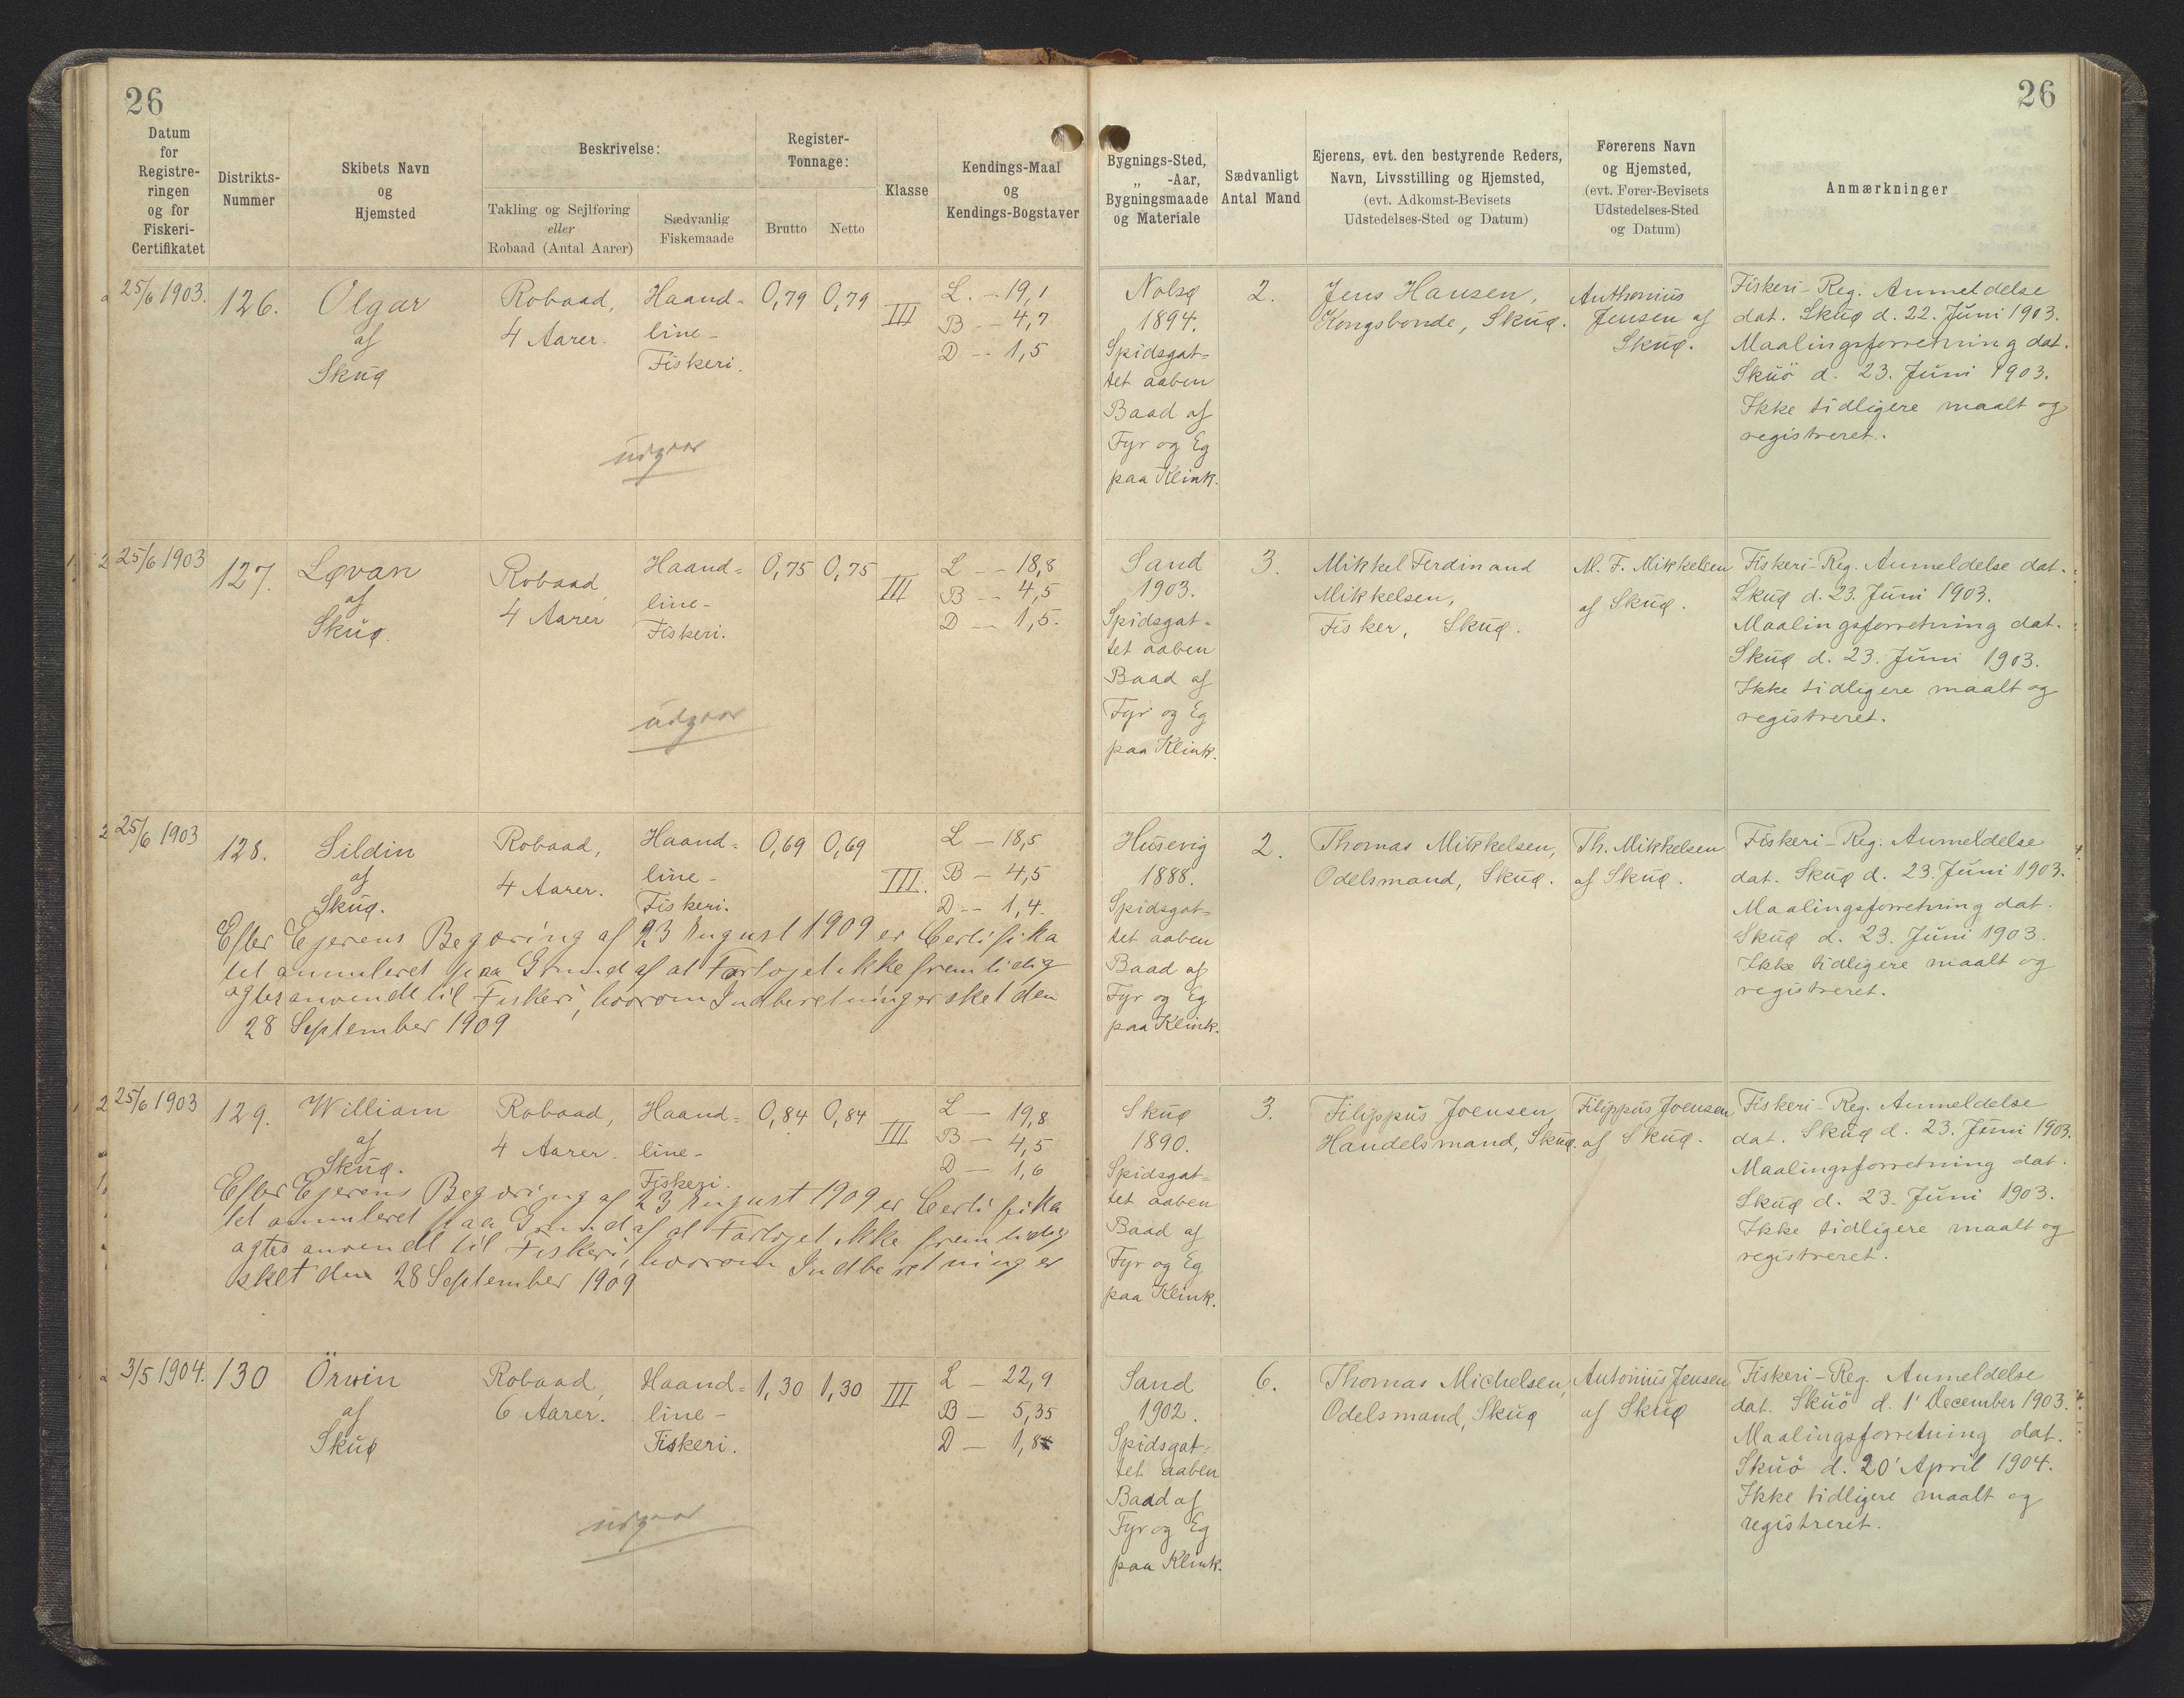 26
Datum
for
Registre-
ringen
og for
Fiskeri-
Certifikatet
Distrikts-
Nummer
Skibets Navn
og
Hjemsted
Beskrivelse:
Takling og Sejlføring
eller
Robaad (Antal Aarer)
Sædvanlig
Fiskemaade
Register-
Tonnage:
Brutto
Netto
Klasse
Kendings-Maal
og
Kendings-Bogstaver
26
Bygnings-Sted,
„ -Aar,
Bygningsmaade
og Materiale
Sædvanligt
Antal Mand
Ejerens, evt. den bestyrende Reders,
Navn, Livsstilling og Hjemsted,
(evt. Adkomst-Bevisets
Udstedelses-Sted og Datum)
Førerens Navn
og Hjemsted,
(evt. Fører-Bevisets
Udstedelses-Sted
og Datum)
Anmærkninger
25/6 1903.
126.
Olgar
af
Skuø
Robaad,
4 Aarer.
Haand-
line-
Fiskeri.
0,79
0,79
III
L. - 19,1
B - 4,7
D - 1,5
udgaar
Nolsø
1894.
Spidsgat-
tet aaben
Baad af
Fyr og Eg
paa Klink.
2.
Jens Hansen,
Kongsbonde, Skuø.
Anthonius
Jensen af
Skuø.
Fiskeri-Reg. Anmeldelse
dat. Skuø d. 22. Juni 1903.
Maalingsforretning dat.
Skuö d. 23. Juni 1903.
Ikke tidligere maalt og
registreret.
25/6 1903
127.
Løvan
af
Skuø.
Robaad,
4 Aarer
Haand-
line-
Fiskeri.
0,75
0,75
III
L - 18,8
B - 4,5
D - 1,5.
udgaar
Sand
1903.
Spidsgat-
tet aaben
Baad af
Fyr og Eg
paa Klink.
3.
Mikkel Ferdinand
Mikkelsen,
Fisker, Skuø.
M. F. Mikkelsen
af Skuø.
Fiskeri-Reg. Anmeldelse dat.
Skuø d. 23. Juni 1903.
Maalingsforretning dat.
Skuø d. 23. Juni 1903.
Ikke tidligere maalt og
registreret.
25/6 1903
128.
Sildin
af
Skuø.
Robaad,
4 Aarer.
Haand-
line-
Fiskeri.
0,69
0,69
III.
L - 18,5
B - 4,5
D - 1,4.
Efter Ejerens Begæring af 23 August 1909 er Certifika
tet annuleret paa Grund af at Fartøjet ikke fremtidig
agtes anvendt til Fiskeri, hvorom Indberetning er sket den
28 September 1909
Husevig
1888.
Spidsgat-
tet aaben
Baad af
Fyr og Eg
paa Klink.
2.
Thomas Mikkelsen,
Odelsmand, Skuø.
Th. Mikkelsen
af Skuø.
Fiskeri-Reg. Anmeldelse
dat. Skuø d. 23. Juni 1903.
Maalingsforretning dat.
Skuø d. 23. Juni 1903.
Ikke tidligere maalt og
registreret.
25/6 1903
129.
William
af
Skuø.
Robaad,
4 Aarer.
Haand-
line-
Fiskeri.
0,84
0,84
III
L - 19,8
B - 4,5
D - 1,6
Efter Ejerens Begæring af 23 August 1909 er Certifika
tet annuleret paa Grund af at Fartøjet ikke fremtidig
agtes anvendt til Fiskeri, hvorom Indberetning er
sket den 28 September 1909
Skuø
1890.
Spidsgat-
tet aaben
Baad af
Fyr og Eg
paa Klink.
3.
Filippus Joensen,
Handelsmand, Skuø.
Filippus Joensen
af Skuø.
Fiskeri-Reg. Anmeldelse
dat. Skuø d. 23. Juni 1903.
Maalingsforretning dat.
Skuø d. 23. Juni 1903.
Ikke tidligere maalt og
registreret.
3/5 1904.
130
Örvin
af
Skuø
Robaad,
6 Aarer.
Haand-
line-
Fiskeri.
1,30
1,30
III
L - 22,9
B - 5,35
D - 1,8
udgaar
Sand
1902.
Spidsgat-
tet aaben
Baad af
Fyr og Eg
paa Klink.
6.
Thomas Michelsen,
Odelsmand, Skuø
Antonius Jensen
af Skuø
Fiskeri-Reg. Anmeldelse
dat. Skuö d. 1' December 1903.
Maalingsforretning dat.
Skuö d. 20' April 1904.
Ikke tidligere maalt og
registreret.